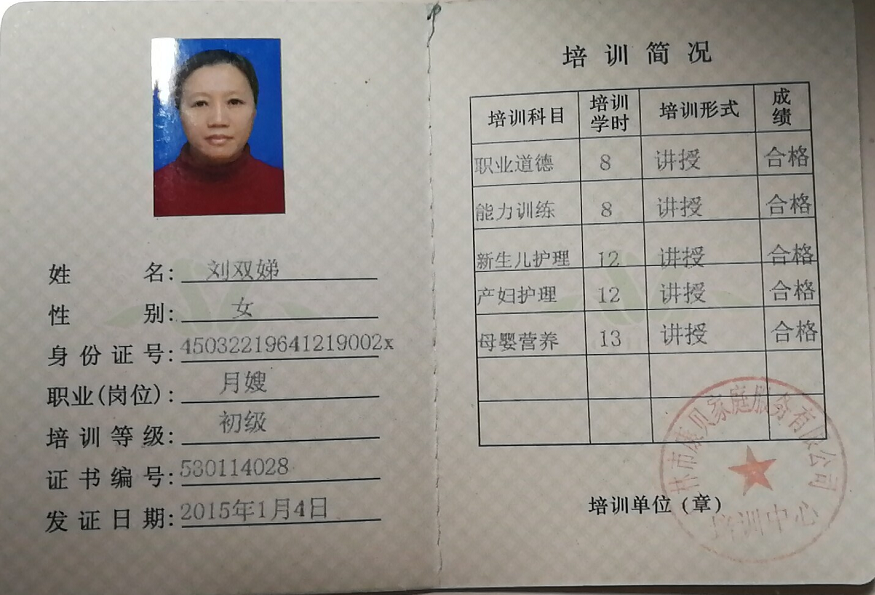 姓名:刘双娣
性别:女
身份证号:45032219641219002x
职业(岗位):月嫂
培训等级:初级
证书编号:530114028
发证日期:2015年1月4日
培训简况
培训科目 培训学时 培训形式 成绩
职业道德 8 讲授 合格
能力训练 8 讲授 合格
新生儿护理 12 讲授 合格
产妇护理 12 讲授 合格
母婴营养 13 讲授 合格
培训单位(章)
林市康贝家庭服务有限公司
培训中心